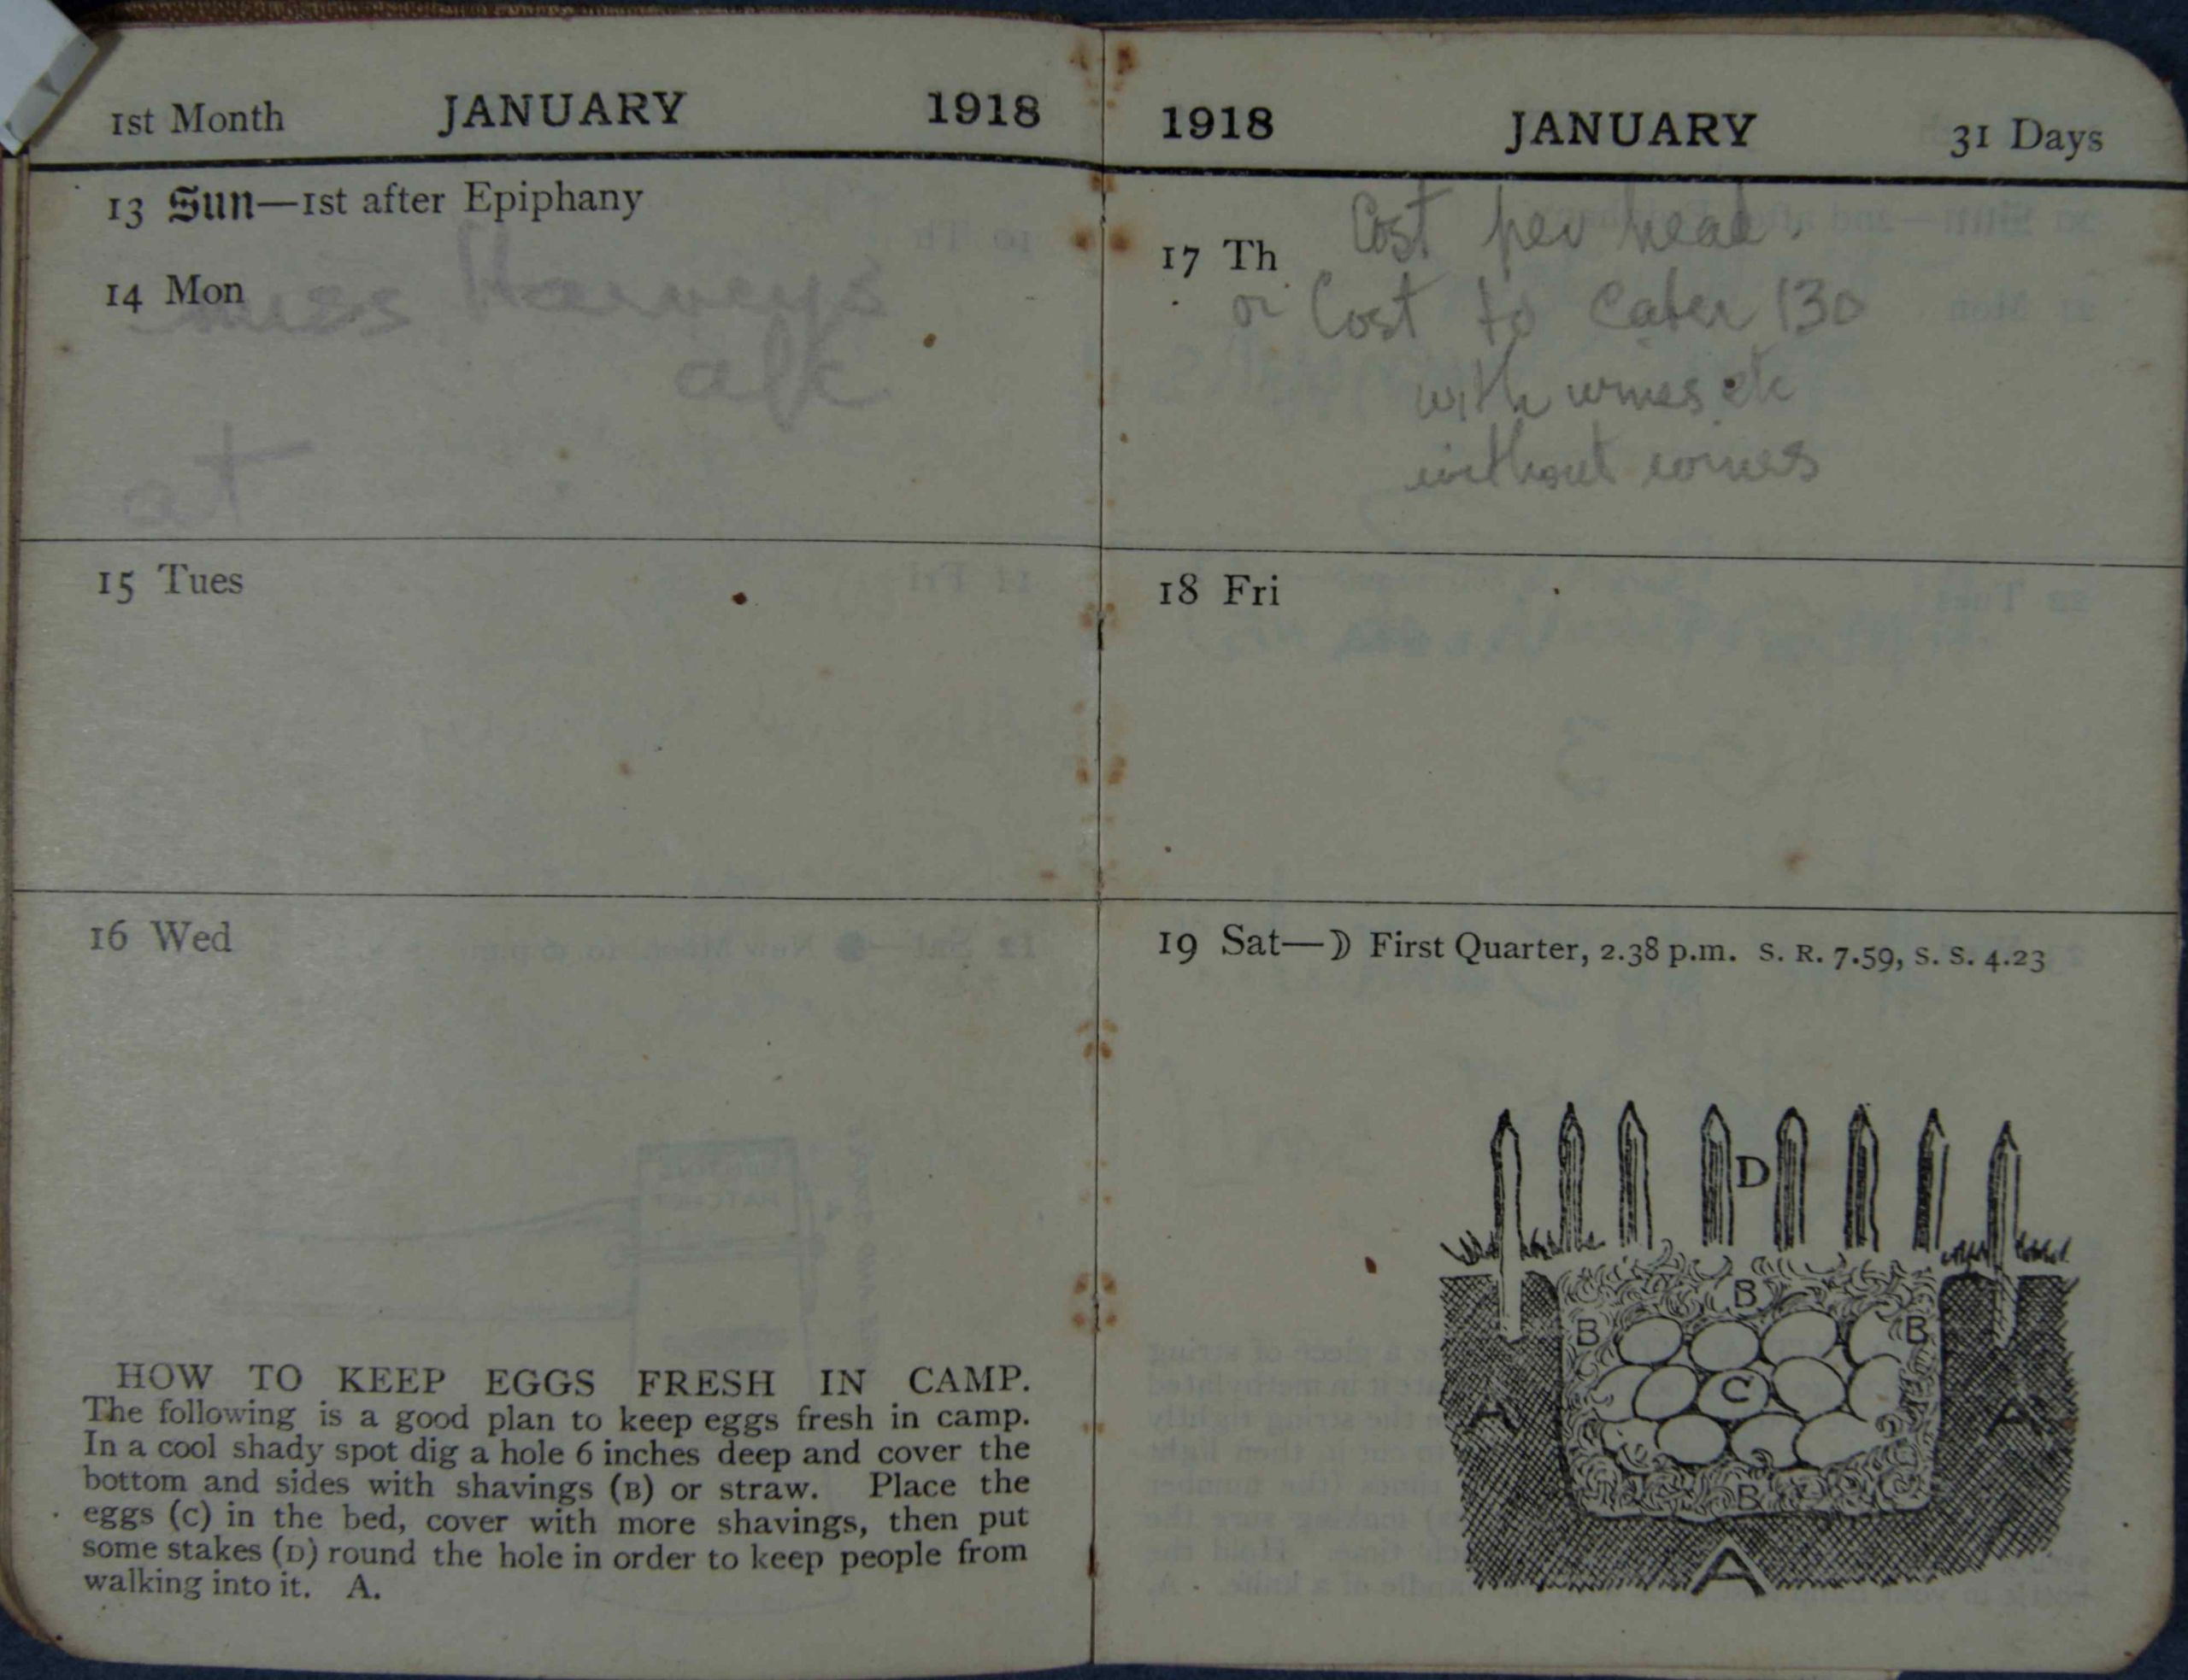 1st Month JANUARY 1918
13 Sun—1st after Epiphany
14 Mon
Miss Harveys
at
15 Tues
16 Wed
HOW TO KEEP EGGS FRESH IN CAMP.
The following is a good plan to keep eggs fresh in camp.
In a cool shady spot dig a hole 6 inches deep and cover the
bottom and sides with shavings (B) or straw. Place the
eggs (C) in the bed, cover with more shavings, then put
some stakes (D) round the hole in order to keep people from
walking into it. A.
1918 JANUARY 31 Days
Cost per head.
17 Th
or Cost to cater 130
with wines etc
without wines
18 Fri
19 Sat—☽ First Quarter, 2.38 p.m. S. R. 7.59, S. S. 4.23
D
B
B B
C
A A
B
A